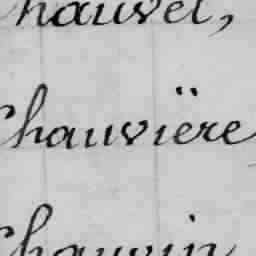 Chauvel,
Chauvière
Chauvin